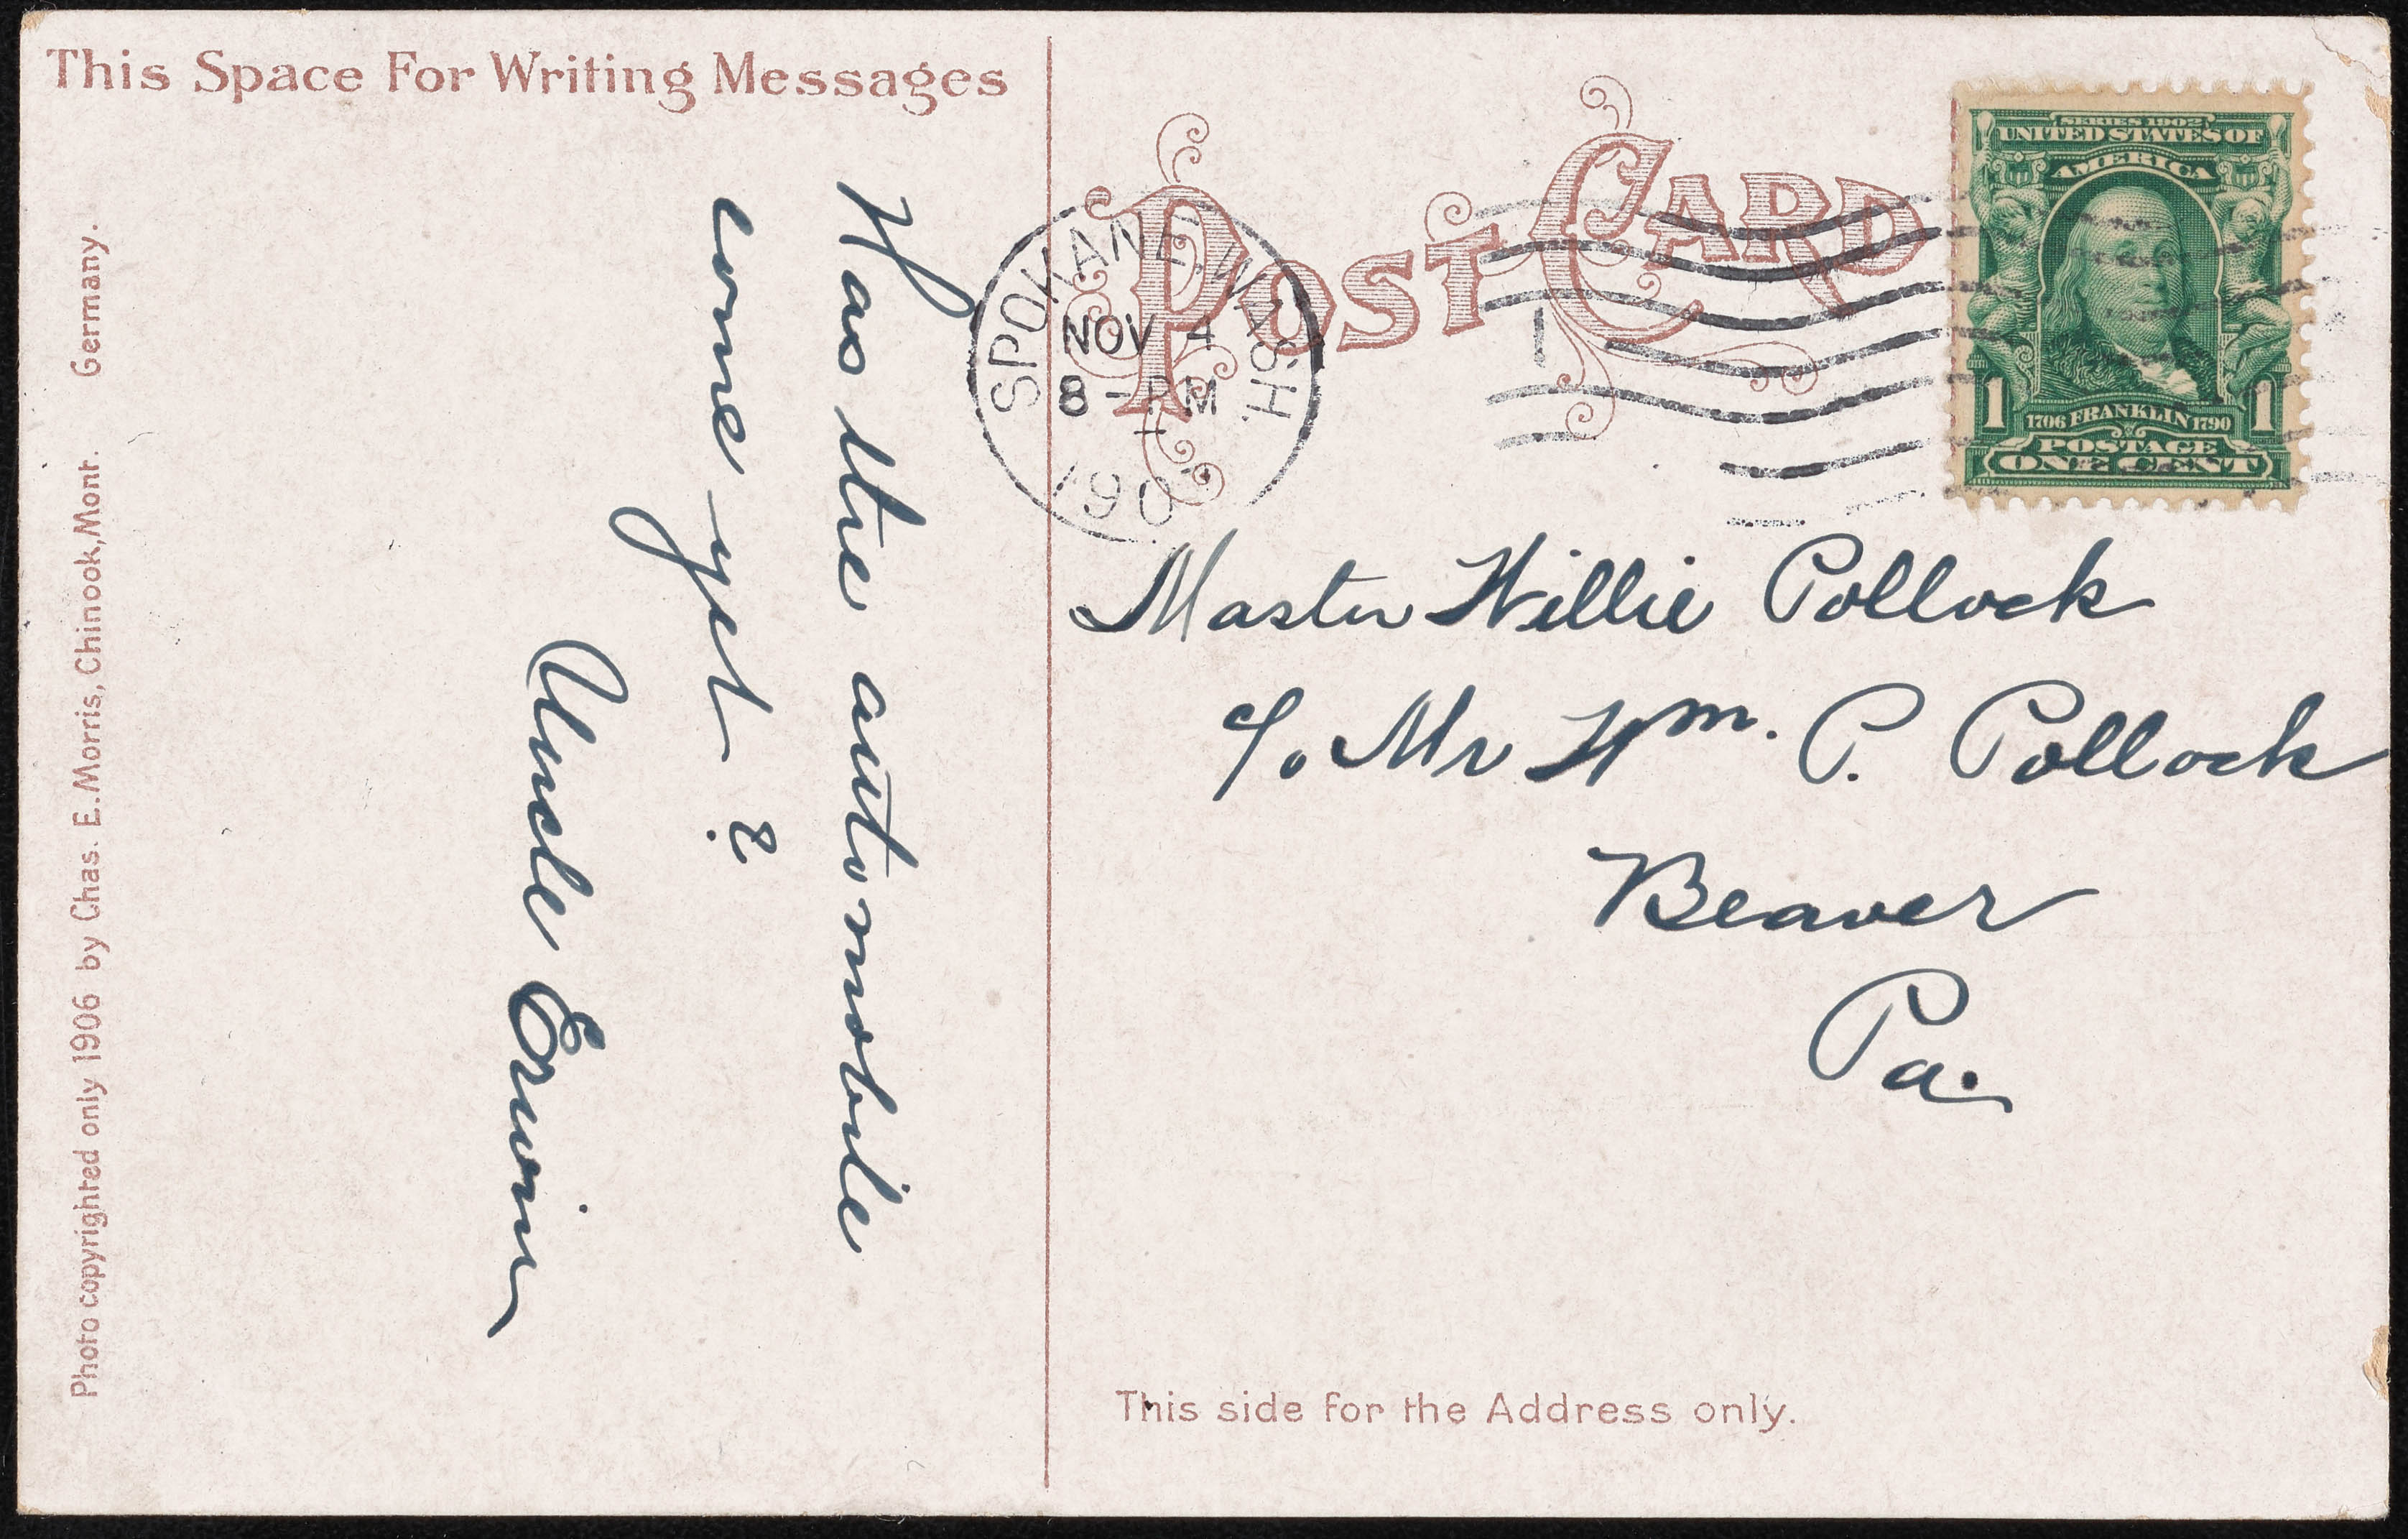 This Space For Writing Messages
Has the automobile
come yet?
Uncle Erwin
Photo copyrighted only 1906 by Chas. E. Morris, Chinook, Mont. Germany.
POST CARD
SPOKANE, WASH.
NOV 4
8 - PM
1
SERIES 1902
UNITED STATES OF
AMERICA
1 1706 FRANKLIN 1790 1
POSTAGE
ONE CENT
Master Willie Pollock
c/o Mr Wm. P. Pollock
Beaver
Pa.
This side for the Address only.